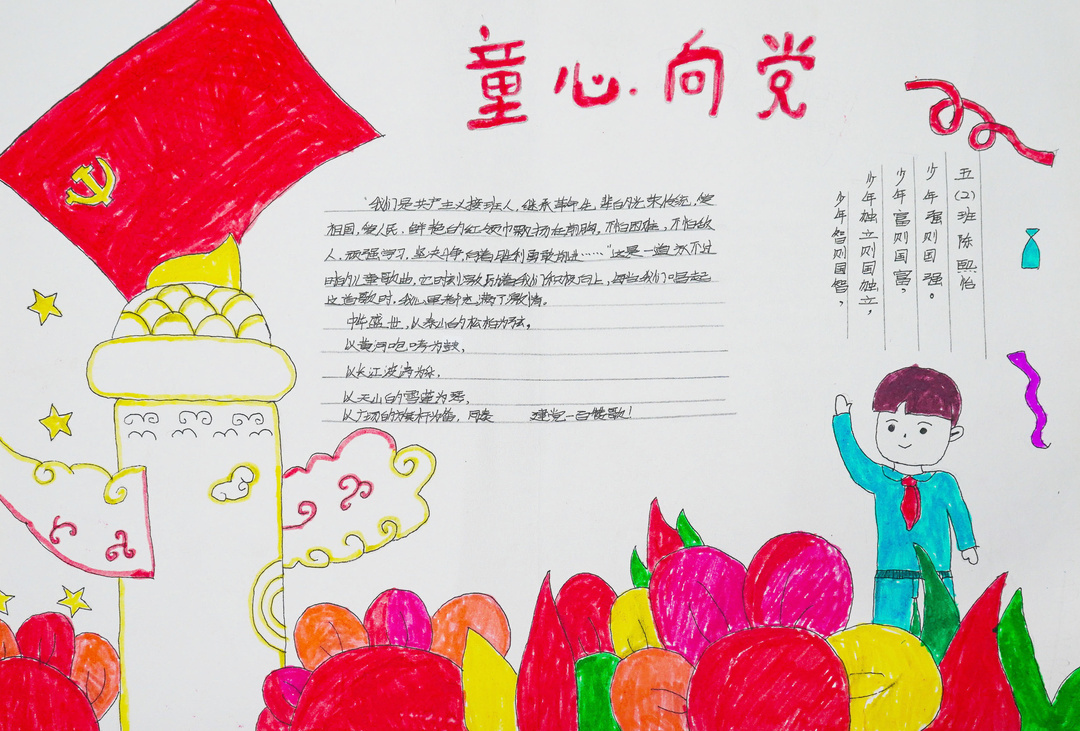 童心·向党
"我们是共产主义接班人,继承革命先辈的光荣传统,爱
祖国,爱人民,鲜艳的红领巾飘扬在前胸,不怕困难,不怕敌
人,顽强学习,坚决斗争,向着胜利勇敢前进……"这是一首永不过
时的儿童歌曲,它时刻激励着我们积极向上,每当我们唱起
这首歌时,我心里都充满了激情。
中华盛世,以泰山的松柏为弦,
以黄河咆哮为鼓,
以长江波涛为
以天山的雪莲为
以广场的旗杆为笛,同奏 建党一百赞歌!
五(2)班 陈熙怡
少年强则国强。
少年富则国富,
少年独立则国独立,
少年智则国智,